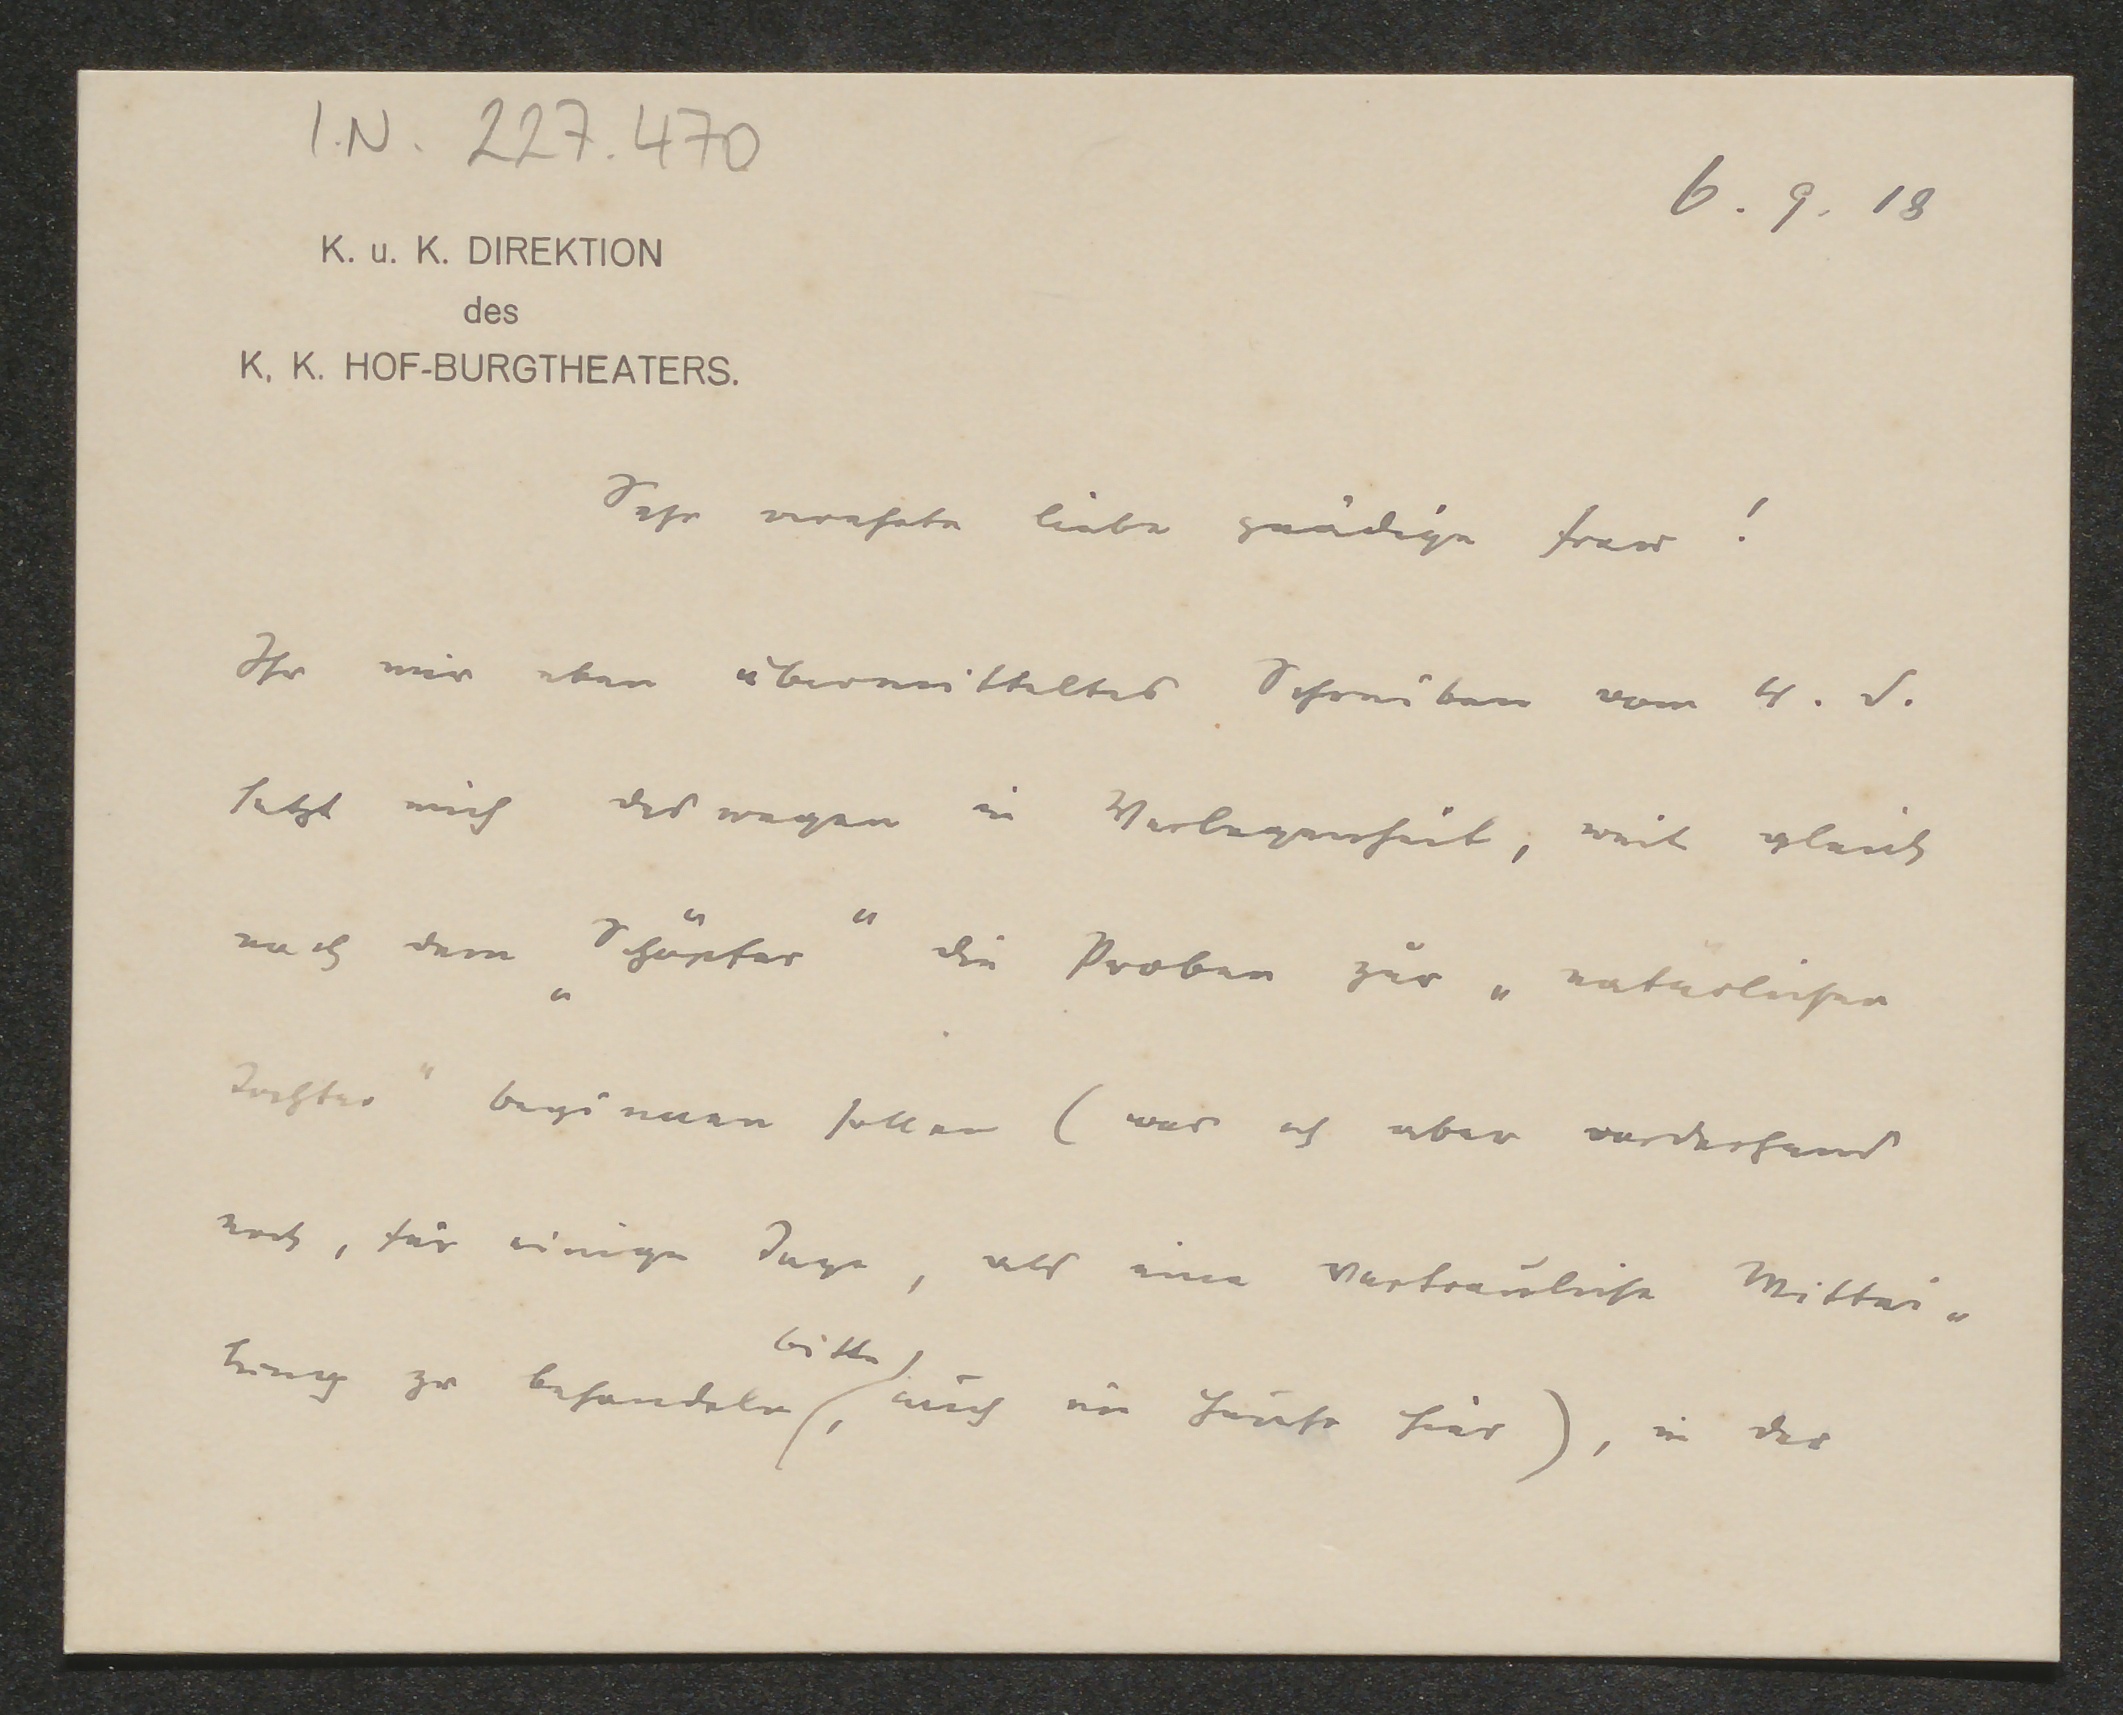 I.N. 227.470
6. 9. 18
K. u. K. DIREKTION
des
K. K. HOF-BURGTHEATERS.
Sehr verehrte liebe gnädige Frau!
Ihr mir eben übermitteltes Schreiben vom 4. d.
setzt mich deswegen in Verlegenheit, weil gleich
nach dem „Schöpfer“ die Proben zur „natürlichen
Tochter“ beginnen sollen (was ich aber vorderhand
noch, für einige Tage, als eine vertrauliche Mittei„
lung zu behandeln bitte, auch im Hause hier), in der